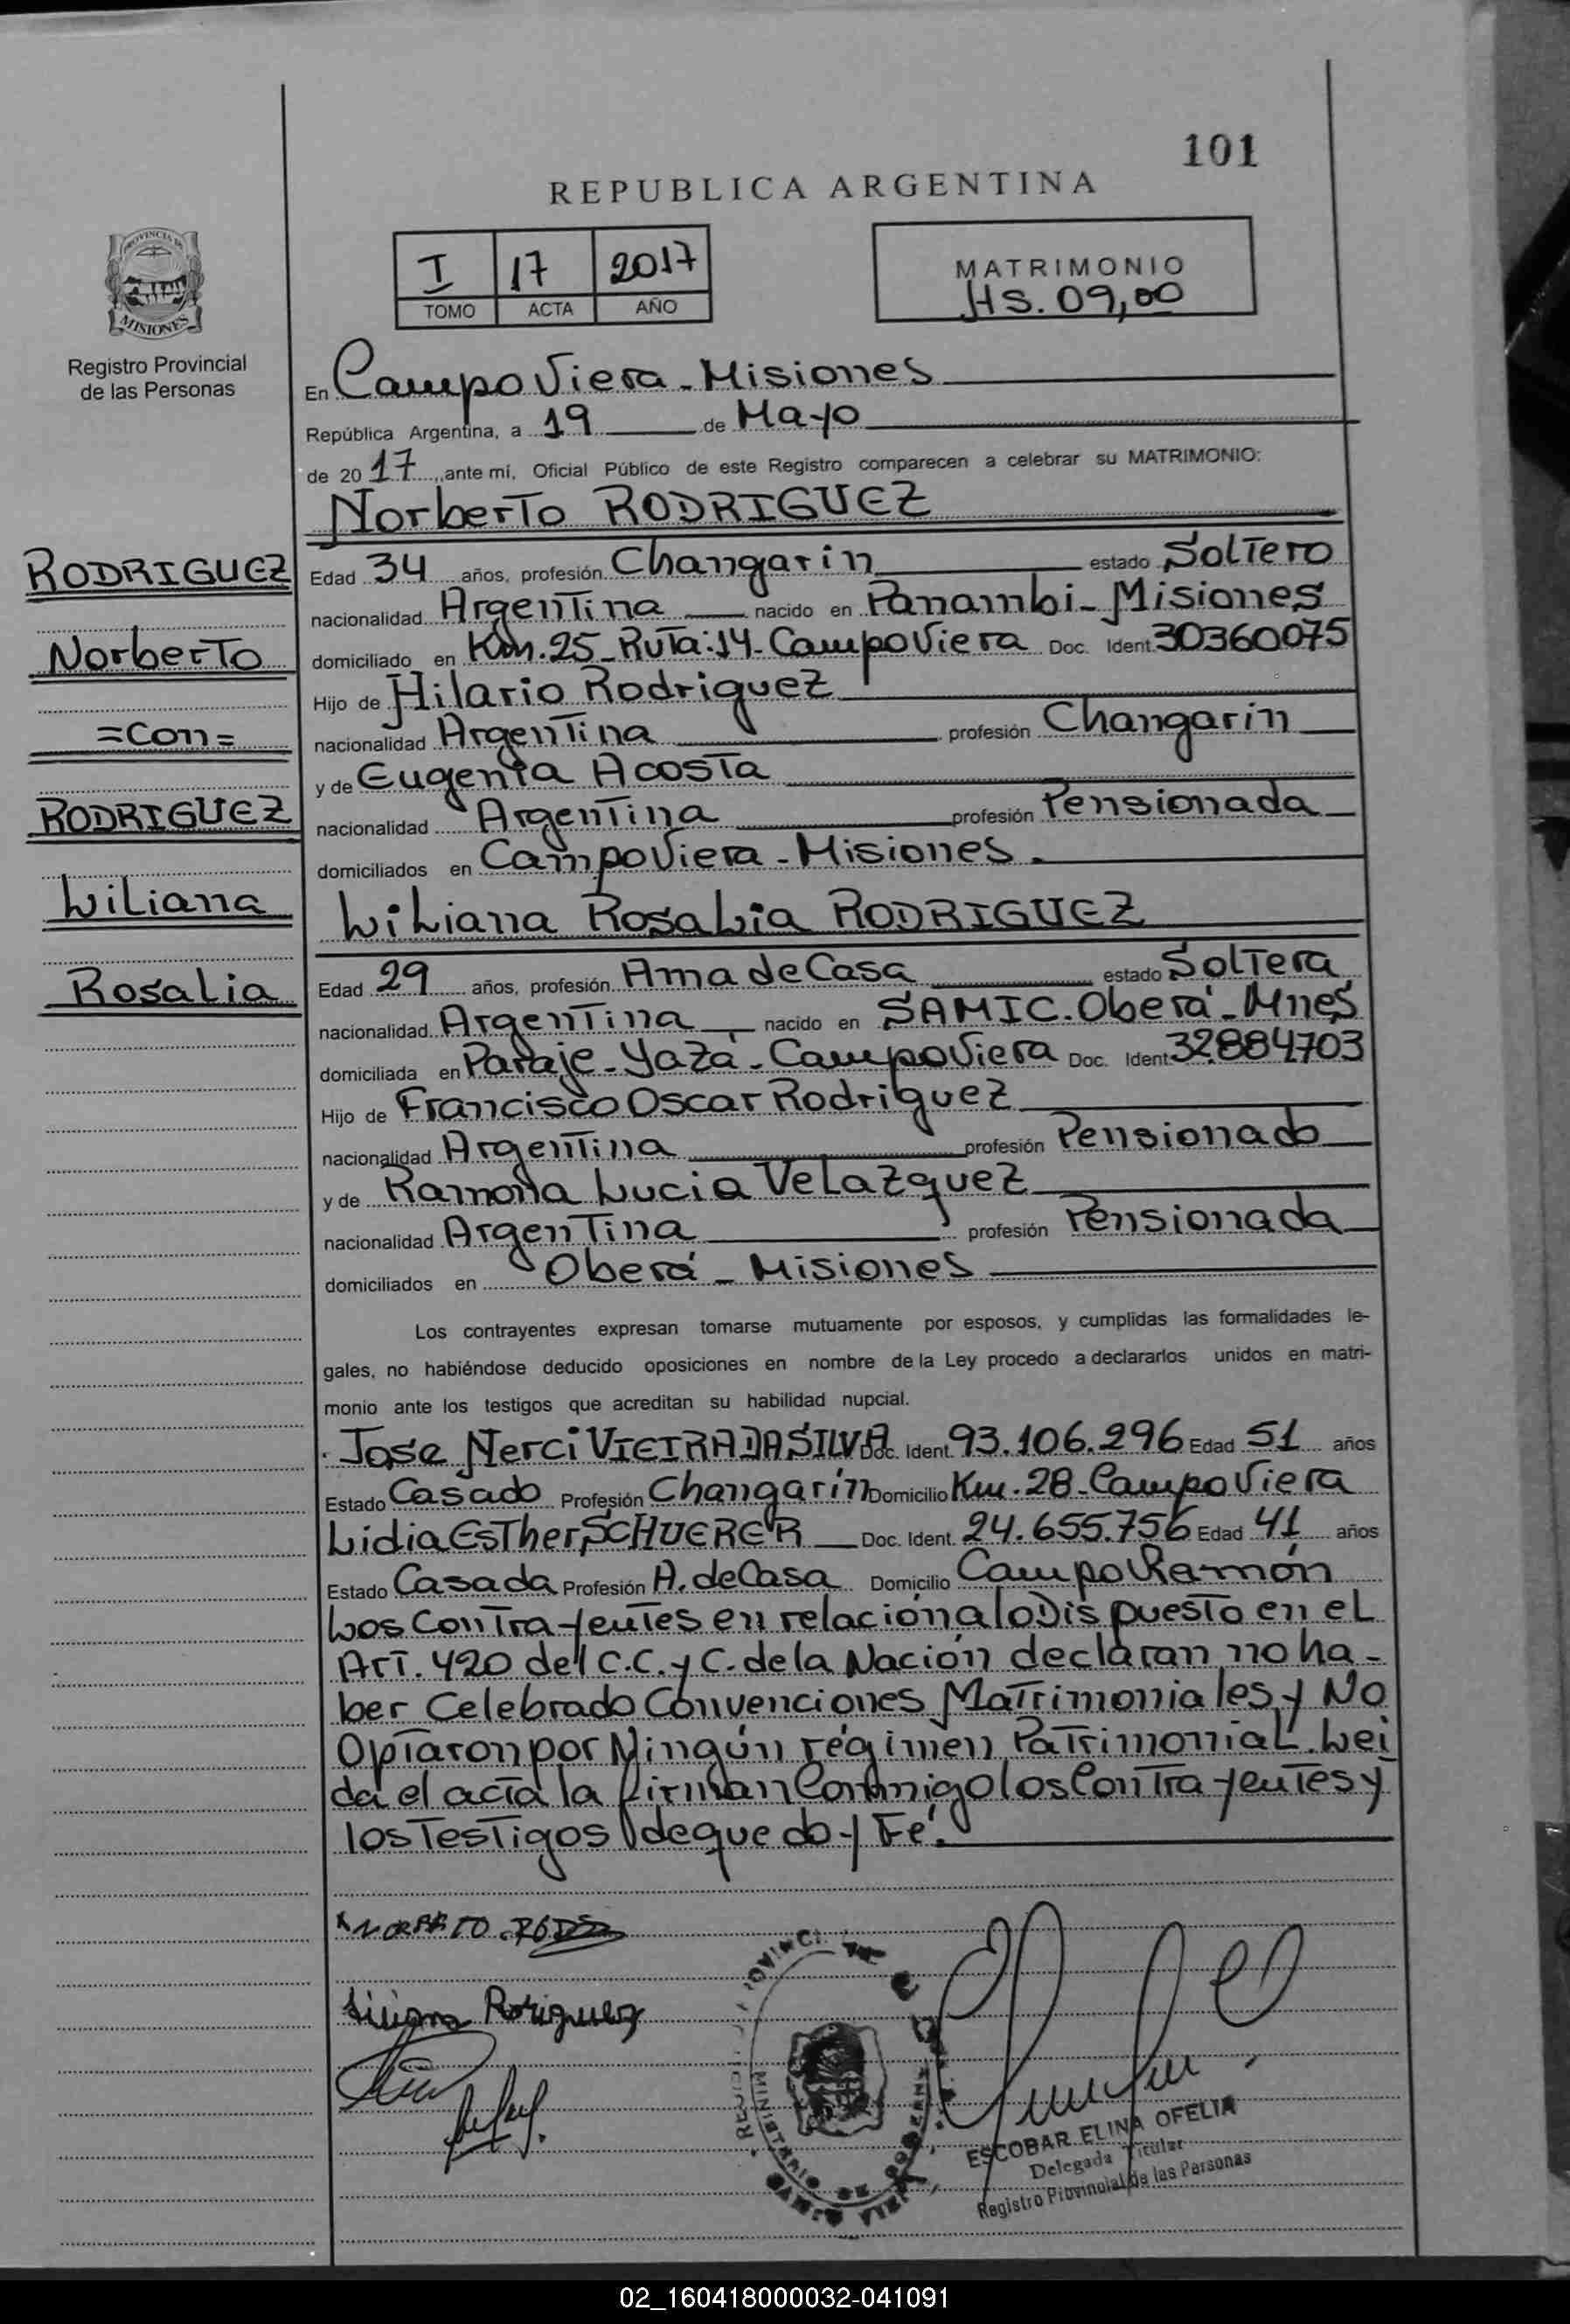 101
REPUBLICA ARGENTINA
PROVINCIA DE
MISIONES
Registro Provincial
de las Personas
I 17 2017
TOMO ACTA AÑO
MATRIMONIO
HS. 09,00
En Campo Viera - Misiones
República Argentina, a 19 de Mayo
de 2017, ante mí, Oficial Público de este Registro comparecen a celebrar su MATRIMONIO:
Norberto RODRIGUEZ
RODRIGUEZ
Norberto
=Con=
RODRIGUEZ
Liliana
Rosalia
Edad 34 años, profesión Changarin estado Soltero
nacionalidad Argentina nacido en Panambi - Misiones
domiciliado en Km. 25 - Ruta: 14 - Campo Viera Doc. Ident. 30360075
Hijo de Hilario Rodriguez
nacionalidad Argentina profesión Changarin
y de Eugenia Acosta
nacionalidad Argentina profesión Pensionada
domiciliados en Campo Viera - Misiones.
Liliana Rosalia RODRIGUEZ
Edad 29 años, profesión Ama de Casa estado Soltera
nacionalidad Argentina nacido en SAMIC. Oberá - Mnes
domiciliada en Paraje - Yazá - Campo Viera Doc. Ident. 32.884703
Hijo de Francisco Oscar Rodriguez
nacionalidad Argentina profesión Pensionado
y de Ramona Lucia Velazquez
nacionalidad Argentina profesión Pensionada
domiciliados en Oberá - Misiones
Los contrayentes expresan tomarse mutuamente por esposos, y cumplidas las formalidades le-
gales, no habiéndose deducido oposiciones en nombre de la Ley procedo a declararlos unidos en matri-
monio ante los testigos que acreditan su habilidad nupcial.
Jose Nerci VIEIRA DA SILVA Doc. Ident. 93.106.296 Edad 51 años
Estado Casado Profesión Changarín Domicilio Km. 28 - Campo Viera
Lidia Esther SCHUERER Doc. Ident. 24.655.756 Edad 41 años
Estado Casada Profesión A. de Casa Domicilio Campo Ramón
Los Contrayentes en relación a lo Dispuesto en el
Art. 420 del C.C. y C. de la Nación declaran no ha-
ber Celebrado Convenciones Matrimoniales y No
Optaron por Ningún régimen Patrimonial. Lei
da el acta la firman Conmigo los Contrayentes y
los Testigos de que doy Fé.
NORBERTO RODR
Liliana Roriguez
ESCOBAR ELINA OFELIA
Delegada Titular
Registro Provincial de las Personas
02_160418000032-041091